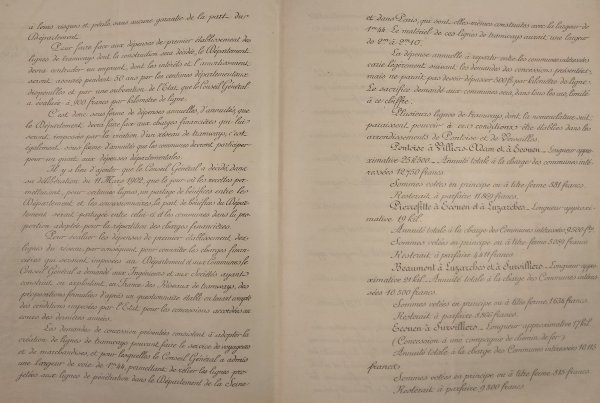 à leurs risques et périls sans aucune garantie de la part du
Département.
Pour faire face aux dépenses de premier établissement des
lignes de tramways dont la construction sera décidée, le Département
devra contracter un emprunt, dont les intérêts et l'amortissement
seront assurés pendant 50 ans par les centimes départementaux
disponibles et par une subvention de l'Etat, que le Conseil Général
a évaluée à 900 francs par kilomètre de ligne.
C'est donc sous forme de dépenses annuelles, d'annuités, que
le Département devra faire face aux charges financières qui lui
seront imposées par la création d'un réseau de tramways, c'est
également sous forme d'annuités que les communes devront participer
pour un quart aux dépenses départementales.
Il y a lieu d'ajouter que le Conseil Général a décidé dans
sa délibération du 11 Mars 1902, que le jour où les recettes per-
mettraient, pour certaines lignes, un partage de bénéfices entre les
Département et les concessionnaires, la part de bénéfices du Départe-
ment serait partagée entre celui-ci et les communes dans la
proportion adoptée pour la répartition des charges financières.
Pour évaluer les dépenses de premier établissement des
lignes du réseau, par conséquent, pour connaître les charges finan-
cières qui seraient imposées au Département et aux Communes, le
Conseil Général a demandé aux Ingénieurs et aux Sociétés ayant
construit ou exploitant en France des Réseaux de tramways, des
propositions formelles d'après un questionnaire établi en tenant compte
des conditions imposées par l'Etat pour les concessions accordées au
cours des dernières années.
Les demandes de concession présentées consistent à adopter la
création de lignes de tramways pouvant faire le service de voyageurs
et de marchandises, et pour lesquelles le Conseil Général a admis
une largeur de voie de 1m44, permettant de relier les lignes pro-
jetées aux lignes de pénétration dans le Département de la Seine
et dans Paris, qui sont elles-mêmes construites avec la largeur de
1m44. Le matériel de ces lignes de tramways aurait une largeur
de 2m à 2m10.
La dépense annuelle à répartir entre les communes intéressées
varie légèrement suivant les demandes des concessions présentées,
mais ne paraît pas devoir dépasser 500 fr par kilomètre de ligne.
Le sacrifice demandé aux communes est, dans tous les cas, limité
à ce chiffre.
Plusieurs lignes de tramways, dont la nomenclature suit,
paraissent pouvoir à ces conditions être établies dans les
arrondissements de Pontoise et de Versailles.
Pontoise à Villiers-Adam et à Ecouen _ Longueur appro-
ximative 25 k 500 _ Annuité totale à la charge des communes inté-
ressées 12,750 francs
Sommes votées en principe ou à titre ferme 881 francs
Resterait à parfaire 11.869 francs.
Pierrefitte à Ecouen et à Luzarches _ Longueur approxi-
mative 19 kil.
Annuité totale à la charge des Communes intéressées 9.500 frs.
Sommes votées en principe ou à titre ferme 5089 francs
Resterait à parfaire 4411 francs.
Beaumont à Luzarches et à Survilliers _ Longueur appro-
ximative 21 kil. _ Annuité totale à la charge des Communes intéres-
sées 10.500 francs.
Sommes votées en principe ou à titre ferme 1635 francs
Resterait à parfaire 8865 francs.
Ecouen à Survilliers _ Longueur approximative 17 kil
(Concession à une compagnie de chemin de fer)
Annuité totale à la charge des Communes intéressées 10.115
francs.
Sommes votées en principe ou à titre ferme 815 francs
Resterait à parfaire 9300 francs